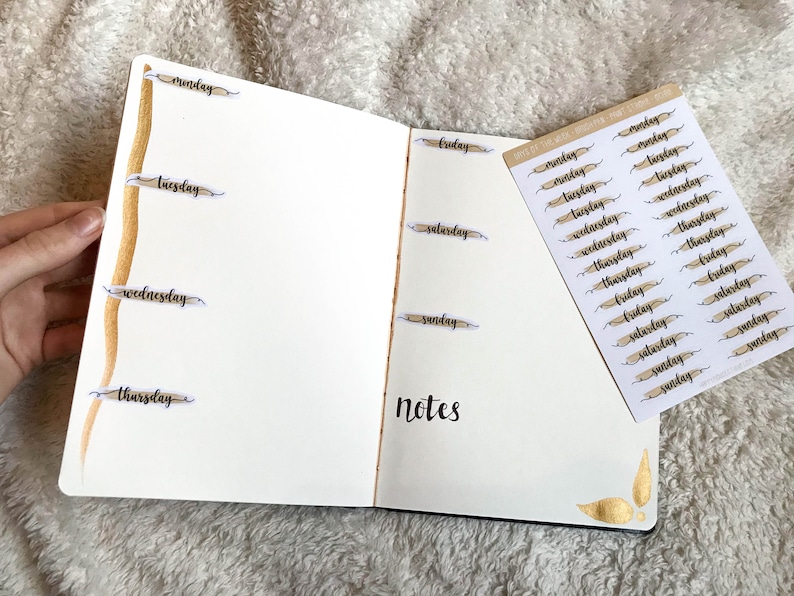 monday
tuesday
wednesday
thursday
friday
saturday
sunday
notes
DAYS OF THE WEEK
monday
monday
tuesday
tuesday
wednesday
wednesday
thursday
thursday
friday
friday
saturday
saturday
sunday
sunday
monday
monday
tuesday
tuesday
wednesday
wednesday
thursday
thursday
friday
friday
saturday
saturday
sunday
sunday